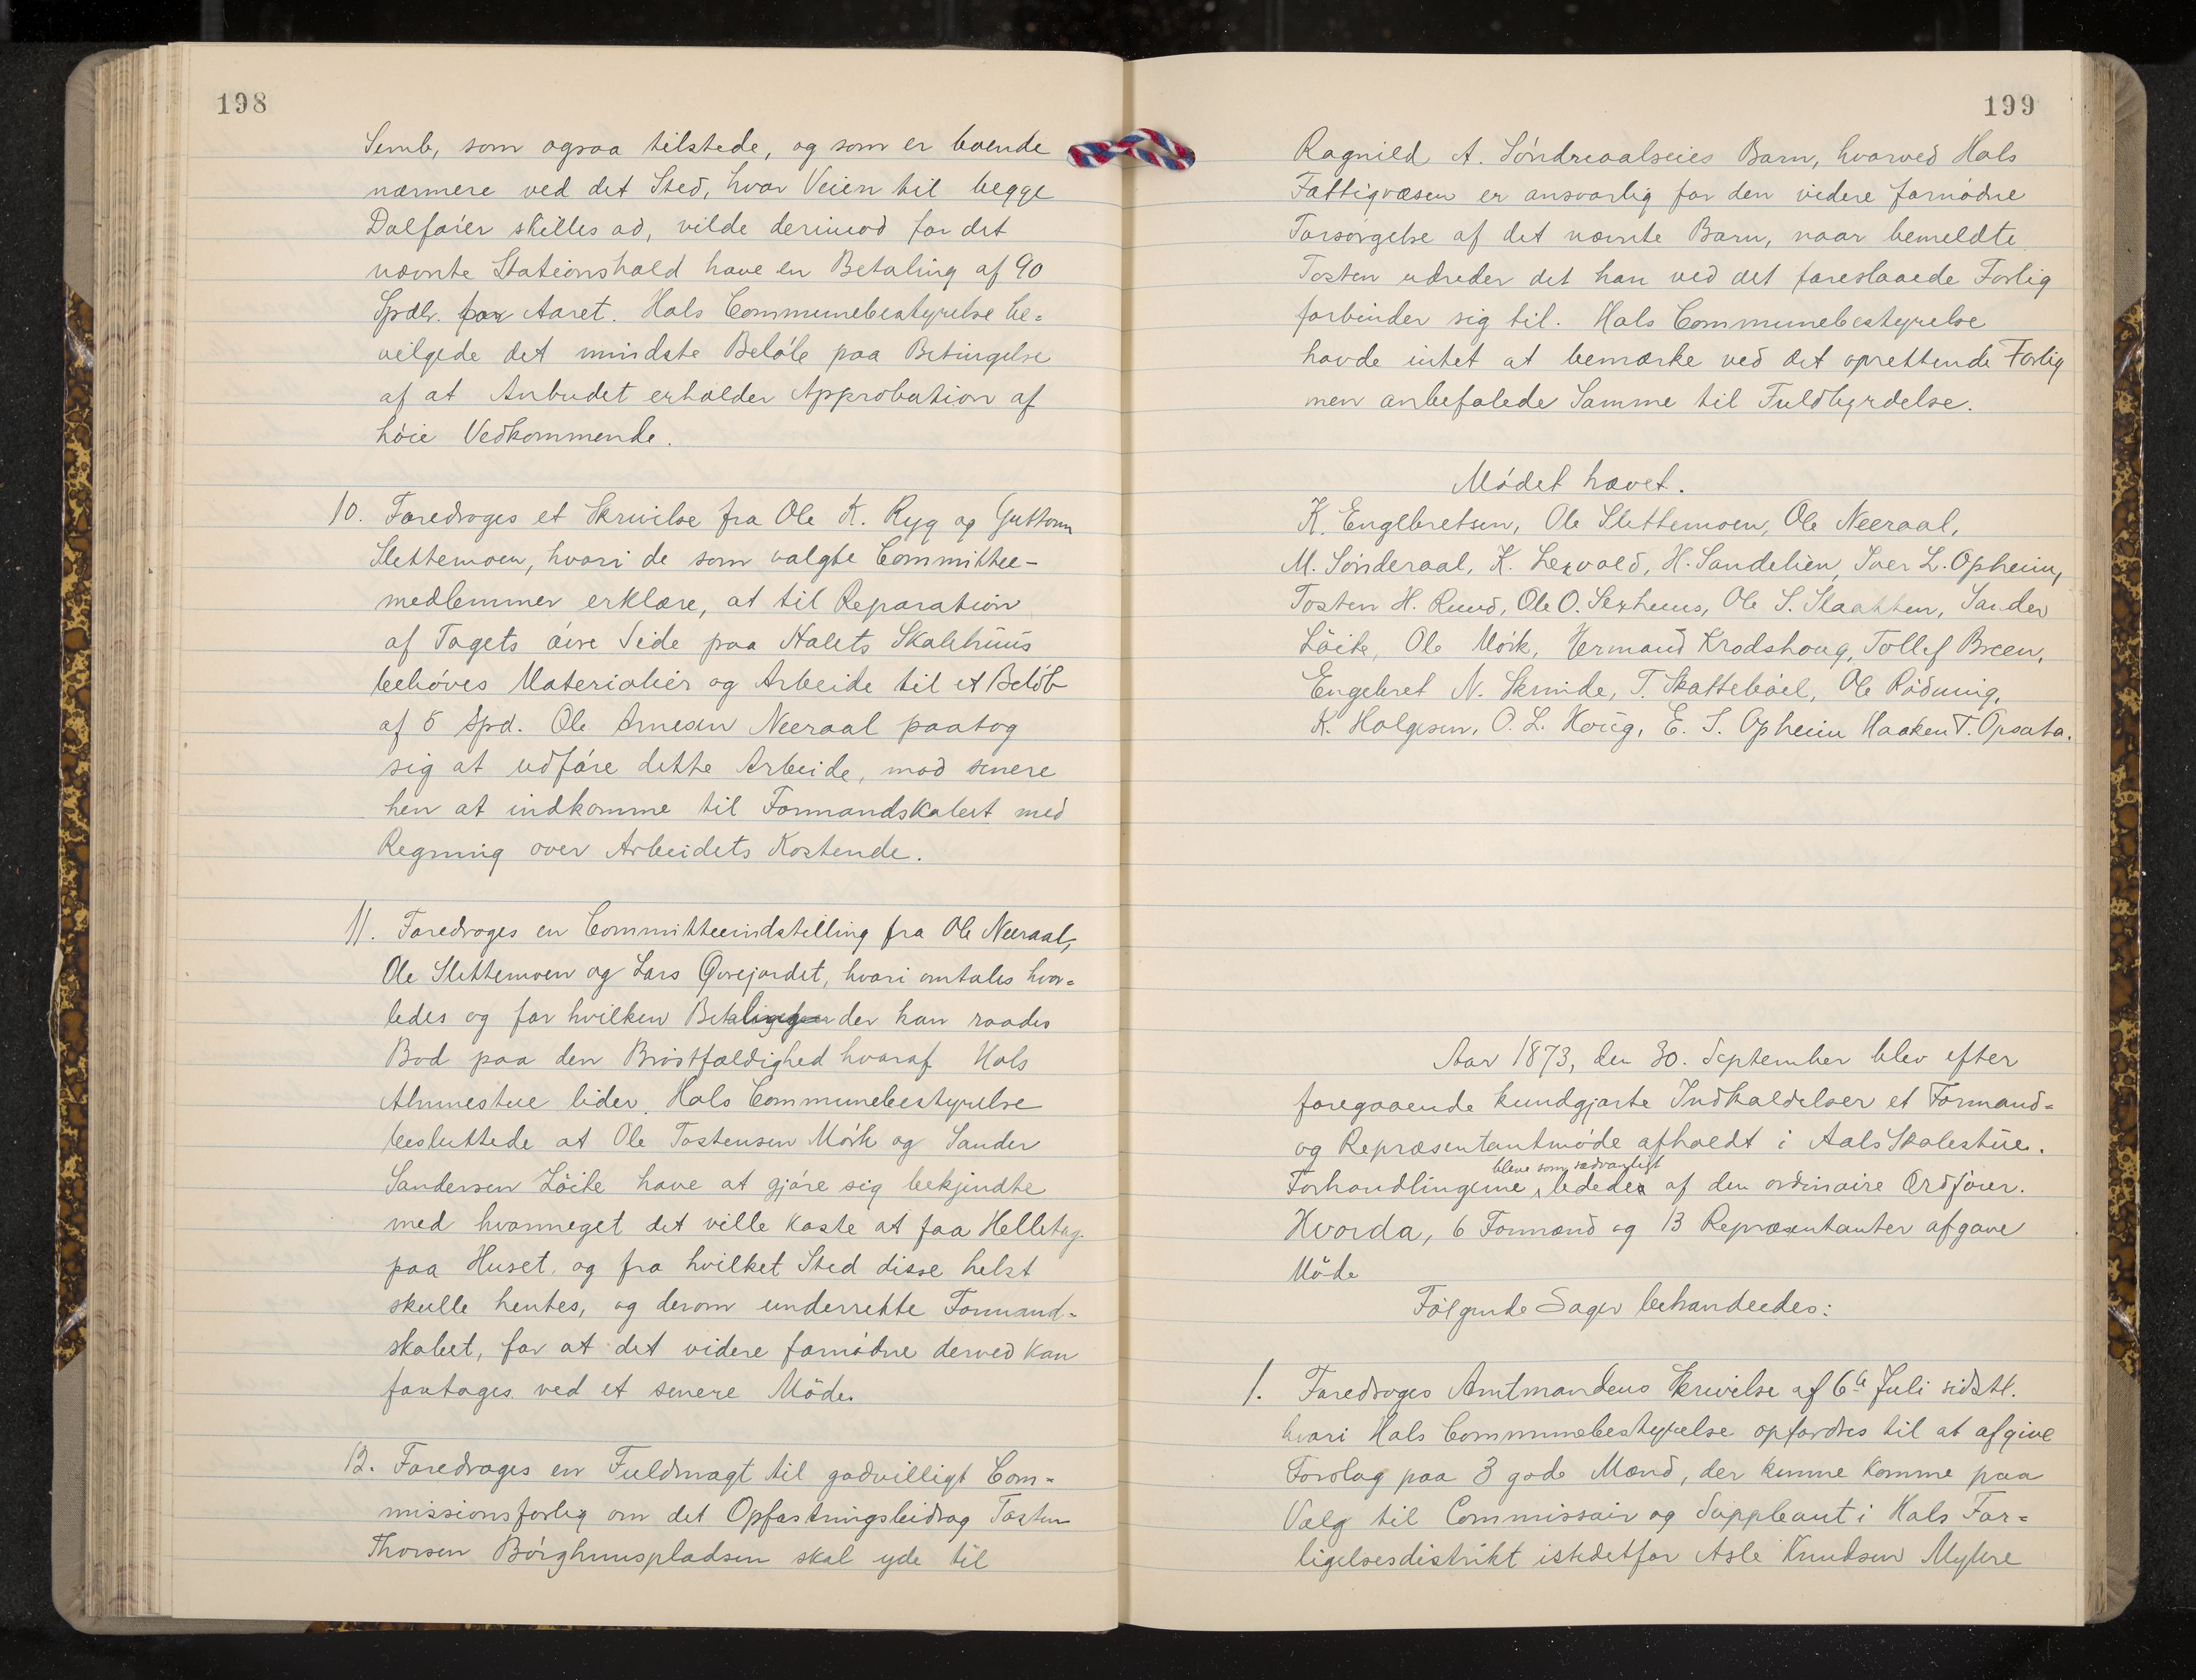 198
Semb, som ogsaa tilstede, og som er boende
nærmere ved det Sted, hvor Veien til begge
Dalføier skilles ad, vilde derimod for det
nævnte Stationshold have en Betaling af 90
Spdlr. for Aaret. Hols Communebestyrelse be=
vilgede det mindste Beløb paa Betingelse
af at Anbudet erholder Approbation af
høie Vedkommende.
10. Foredroges et Skrivelse fra Ole K. Ryg og Guttorm
Slettemoen, hvori de som valgte Committee-
medlemmer erklære, at til Reparation
af Tagets øvre Side paa Halets Skolehuus
behøves Materialier og Arbeide til et Beløb
af 5 Spd. Ole Arnesen Neeraal paatog
sig at udføre dette Arbeide, mod senere
hen at indkomme til Formandskabet med
Regning over Arbeidets Kostende.
11. Foredroges en Committeeindstilling fra Ole Neeraal,
Ole Slettemoen og Lars Qvejordet, hvori omtales hvor=
ledes og for hvilken Betalingen der kan raades
Bod paa den Brøstfældighed hvoraf Hols
Almuestue lider. Hols Communebestyrelse
besluttede at Ole Tostensen Mørk og Sander
Sandersen Løite have at gjøre sig bekjendte
med hvormeget det ville koste at faa Helletag
paa Huset og fra hvilket Sted disse helst
skulle hentes, og derom underrette Formand=
skabet, for at det videre fornødne derved kan
foretages ved et senere Møde.
12. Foredroges en Fuldmagt til godvilligt Com=
missionsforlig om det Opfostringsbidrag Tosten
Thorsen Børghuuspladsen skal yde til
199
Ragnild A. Søndreaalseies Barn, hvorved Hols
Fattigvæsen er ansvarlig for den videre fornødne
Forsørgelse af det nævnte Barn, naar bemeldte
Tosten udreder det han ved det foreslaaede Forlig
forbinder sig til. Hols Communebestyrelse
havde intet at bemærke ved det oprettende Forlig
men anbefalede Samme til Fuldbyrdelse.
Mødet hævet.
K. Engebretsen, Ole Slettemoen, Ole Neeraal,
M. Sønderaal, K. Lexvold, H. Sandelien, Iver L. Opheim,
Tosten H. Ruud, Ole O. Sexhuus, Ole S. Slaatten, Sander
Løite, Ole Mørk, Hermand Krodshoug, Tollef Breen,
Engebret N. Skrinde, T. Skattebøel, Ole Rødning,
K. Holgesen, O. L. Houg, E. S. Opheim Haaken T. Opsata.
Aar 1873, den 30. September blev efter
foregaaende kundgjorte Indkaldelser et Formand=
og Repræsentantmøde afholdt i Aals Skolestue.
bleve som sædvanligt
Forhandlingerne ledede af den ordinaire Ordfører.
Hvorda, 6 Formænd og 13 Repræsentanter afgave
Møde
Følgende Sager behandledes:
1. Foredroges Amtmandens Skrivelse af 6te Juli sidstl.
hvori Hols Communebestyrelse opfordres til at afgive
Forslag paa 3 gode Mænd, der kunne komme paa
Valg til Commissair og Suppleant i Hols For=
ligelsesdistrikt istedetfor Asle Knudsen Myhre